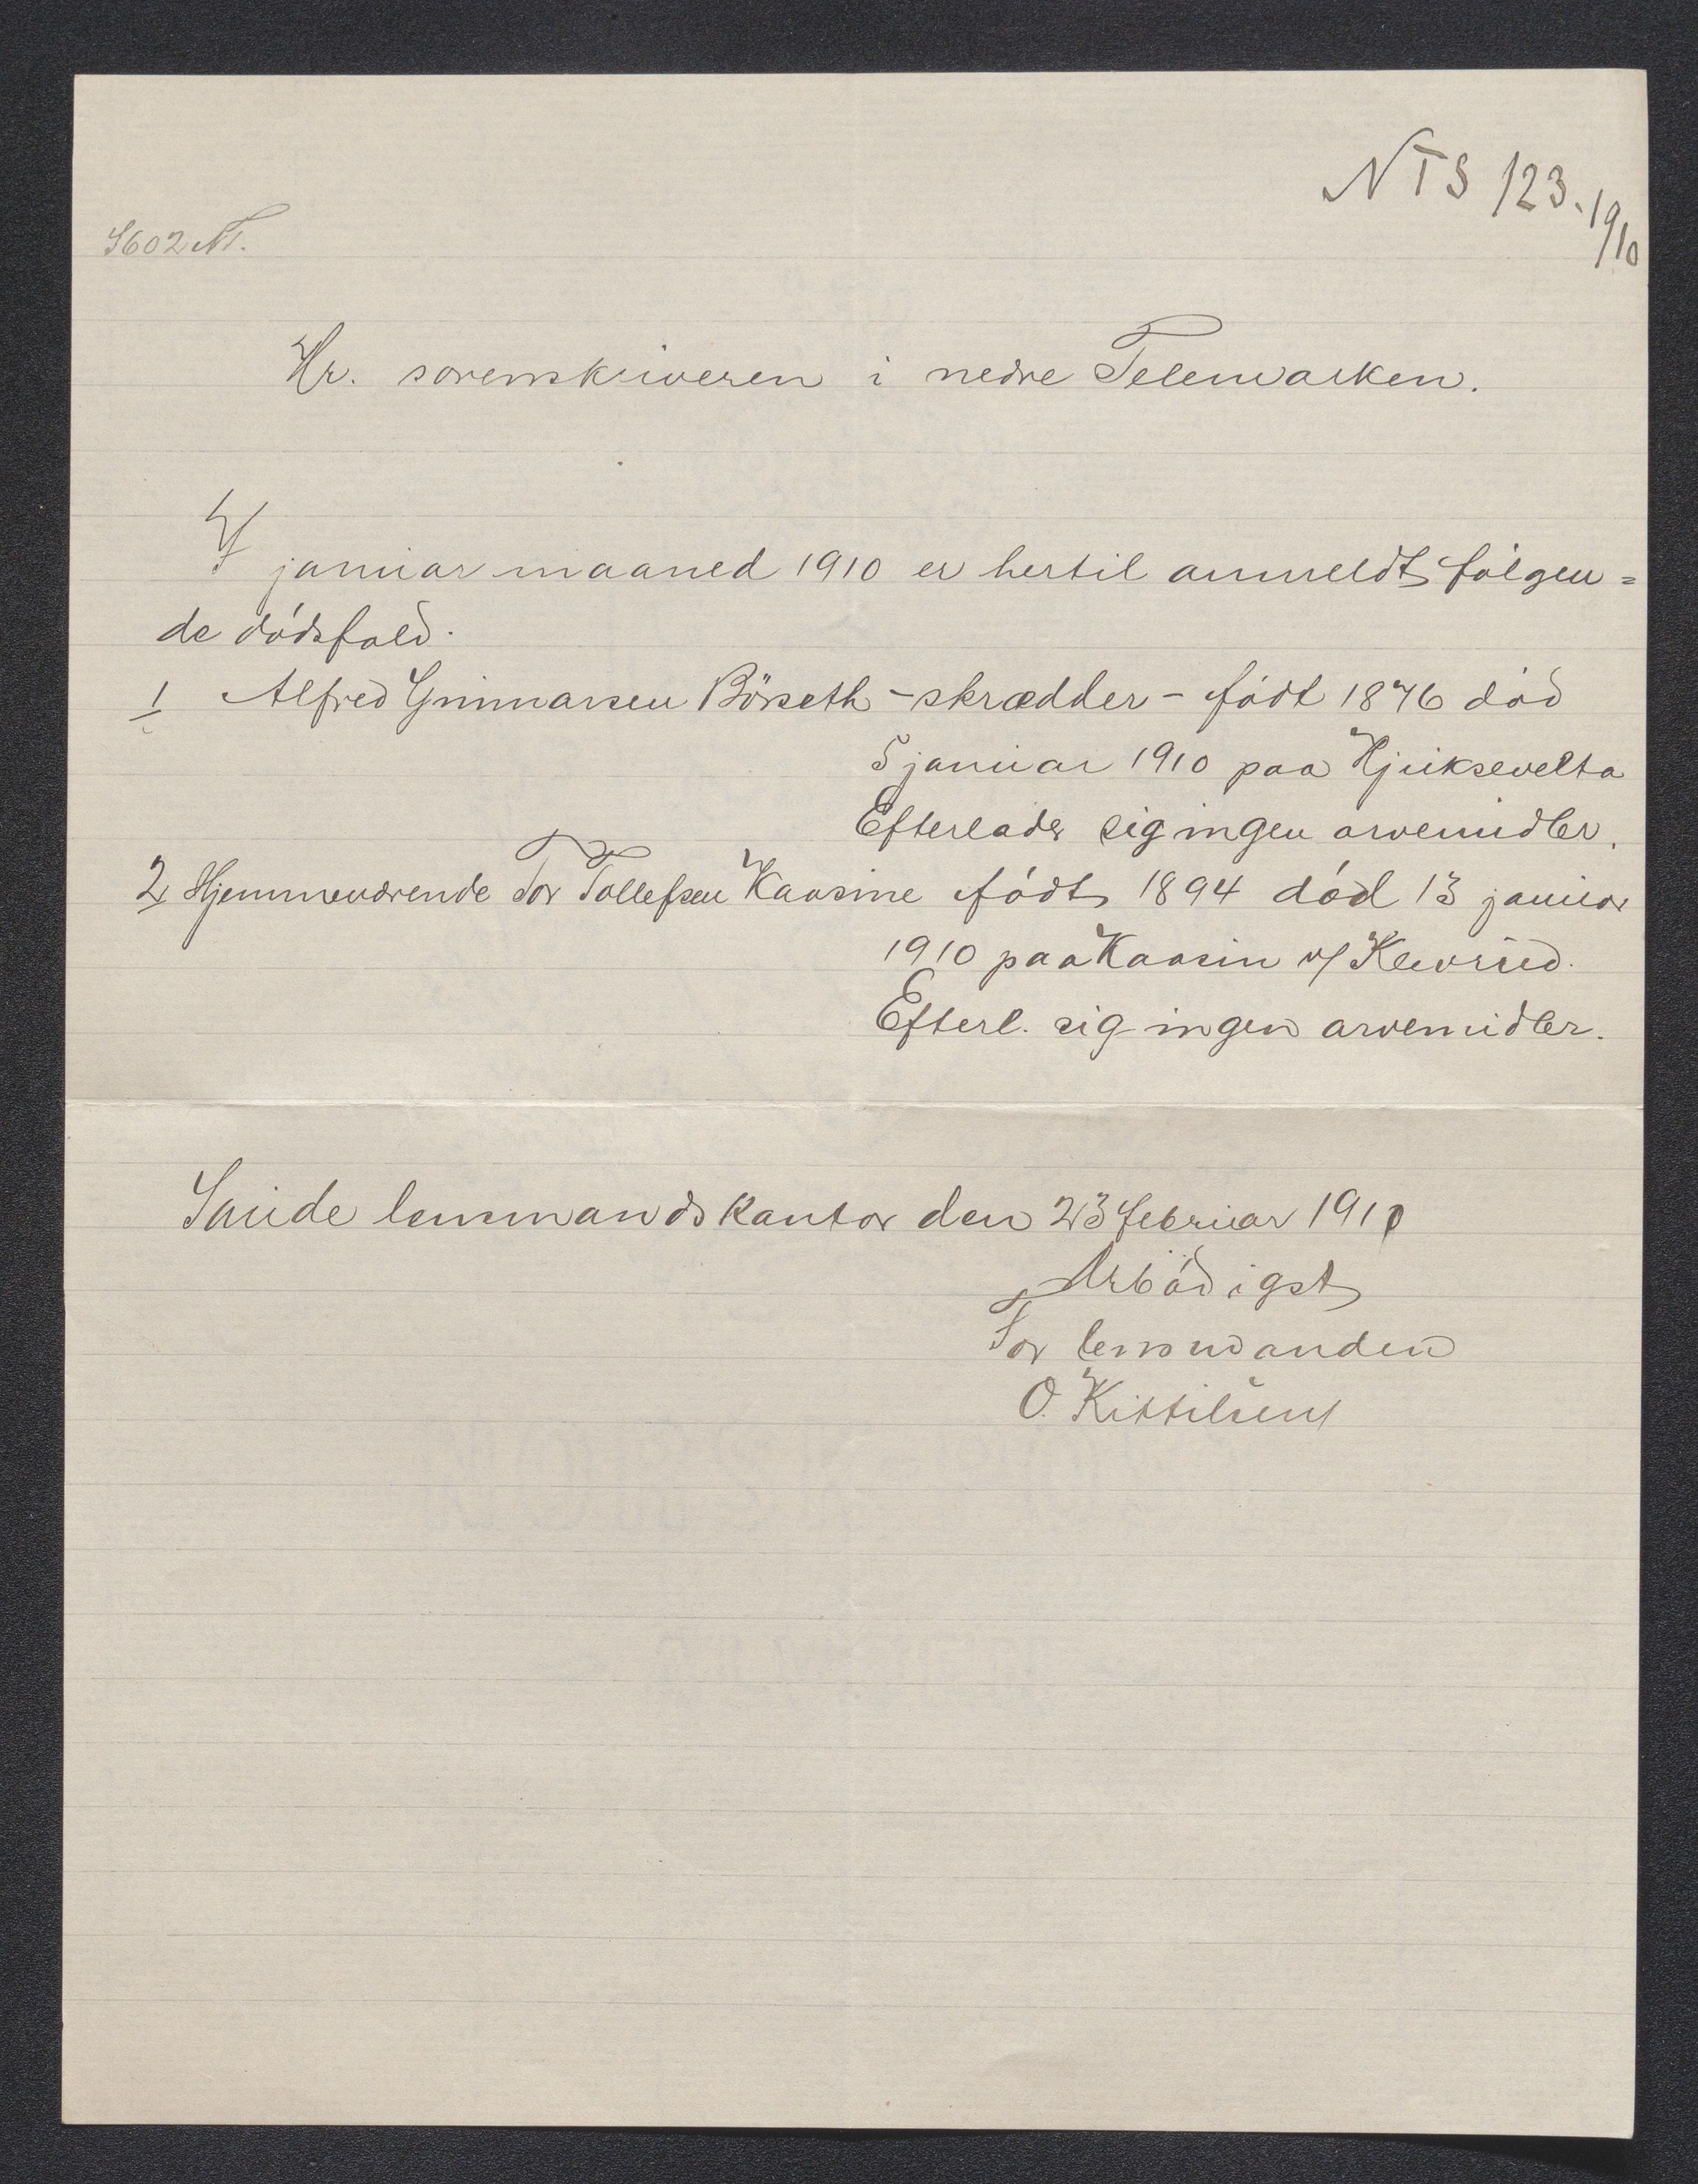 NTS 123. 19/10
S602 NT.
Hr. sorenskriveren i nedre Telemarken.
I januar maaned 1910 er hertil anmeldt følgen=
de dødsfald.
1 Alfred Gunnarsen Børseth - skrædder - født 1876 død
5 januar 1910 paa Hjuksevelta
Efterlader sig ingen arvemidler.
2 Hjemmeværende Tor Tollefsen Kaasine født 1894 død 13 januar
1910 paa Kaasin
Efterl. sig ingen arvemidler.
Saude lensmandskontor den 23 februar 1910
Ærbødigst
For lensmanden
O. Kittilsen